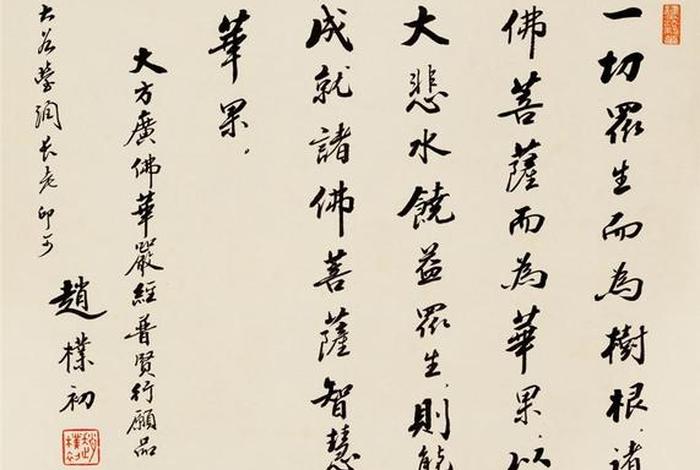 一切眾生而為樹根，諸
佛菩薩而為華果，以
大悲水饒益眾生，則能
成就諸佛菩薩智慧
華果。
大方廣佛華嚴經普賢行願品
大谷瑩潤長老印可
趙樸初
趙樸初